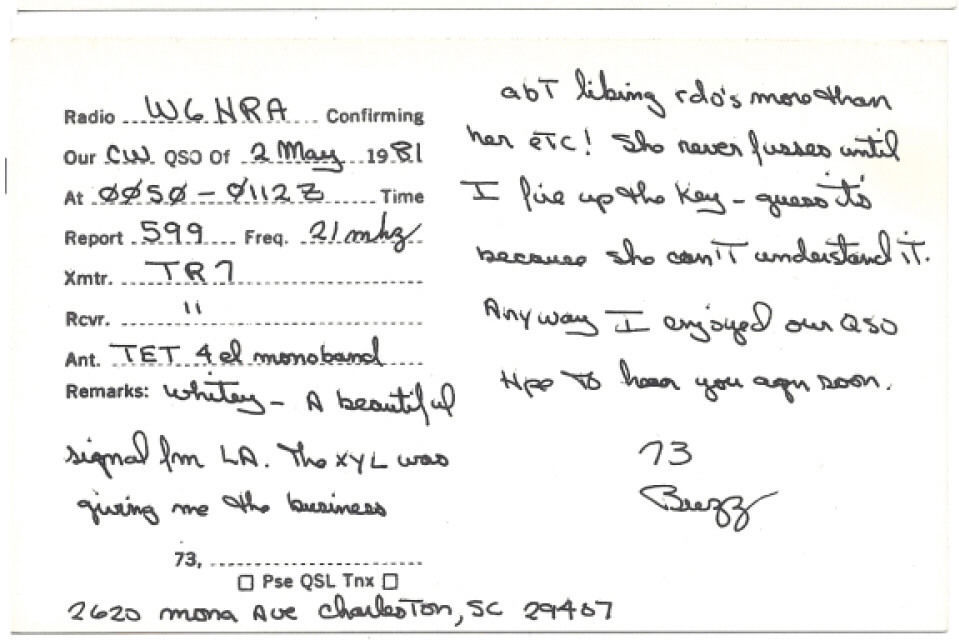 Radio W6NRA Confirming
Our CW QSO Of 2 May 1981
At 0050-0112Z Time
Report 599 Freq. 21 mhz
Xmtr. TR7
Rcvr. "
Ant. TET 4 el monoband
Remarks: Whitey - A beautiful
signal fm LA. The XYL was
giving me the business
73,
Pse QSL Tnx
2620 Mona Ave Charleston, SC 29407
abt liking rdo's more than
her etc! She never fusses until
I fire up the Key - guess it's
because she can't understand it.
Anyway I enjoyed our QSO
Hpe to hear you agn soon.
73
Buzz